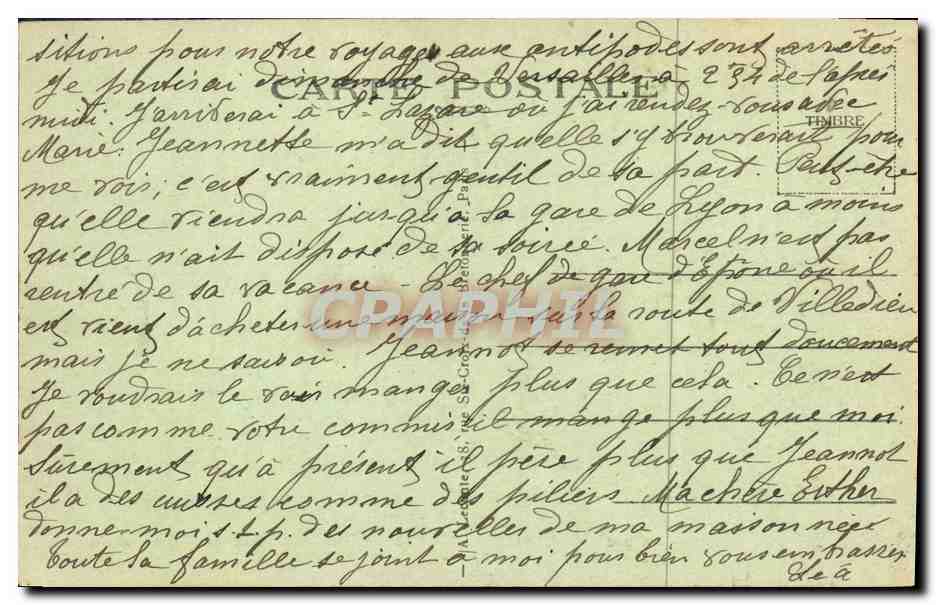 sitions pour notre voyage aux antipodes sont arrêtés
Je partirai dimanche de Versailles à 2 h 34 de l'après
CARTE POSTALE
midi. J'arriverai à St Lazare où j'ai rendez-vous avec
TIMBRE
Marie. Jeannette m'a dit qu'elle s'y trouverait pour
me voir, c'est vraiment gentil de sa part. Peut-être
qu'elle viendra jusqu'à la gare de Lyon à moins
qu'elle n'ait disposé de sa soirée. Marcel n'est pas
rentré de sa vacance - Le chef de gare d'Epône où il
est vient d'acheter une maison sur la route de Villedieu
CPARHIL
mais je ne sais où. Jeannot se remet tout doucement
Je voudrais le voir manger plus que cela. Ce n'est
pas comme votre commis il mange plus que moi.
Sûrement qu'à présent il pèse plus que Jeannot
il a des cuisses comme des piliers Ma chère Esther
donne-moi s.t.p. des nouvelles de ma maisonnée
Toute la famille se joint à moi pour bien vous embrasser
Léa
8, rue Ste-Croix-de-la-Bretonnerie. - Paris